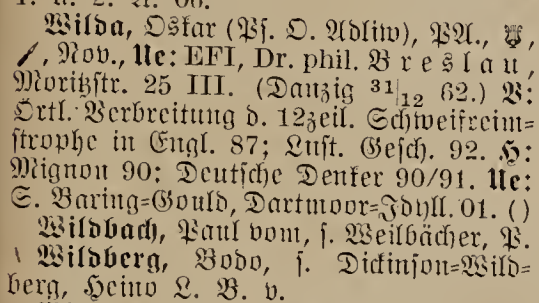 Wilda, Oskar (Ps. O. Adliw), PA.,
, Nov., Ue: EFI, Dr. phil. Breslau,
Moritzstr. 25 III. (Danzig 31/12 62.) V:
Örtl. Verbreitung d. 12zeil. Schweifreim=
strophe in Engl. 87; Lust. Gesch. 92. H:
Mignon 90; Deutsche Denker 90/91. Ue:
S. Baring=Gould, Dartmoor=Idyll. 01. ()
Wildbach, Paul vom, s. Weilbächer, P.
Wildberg, Bodo, s. Dickinson=Wild=
berg, Heino L. B. v.